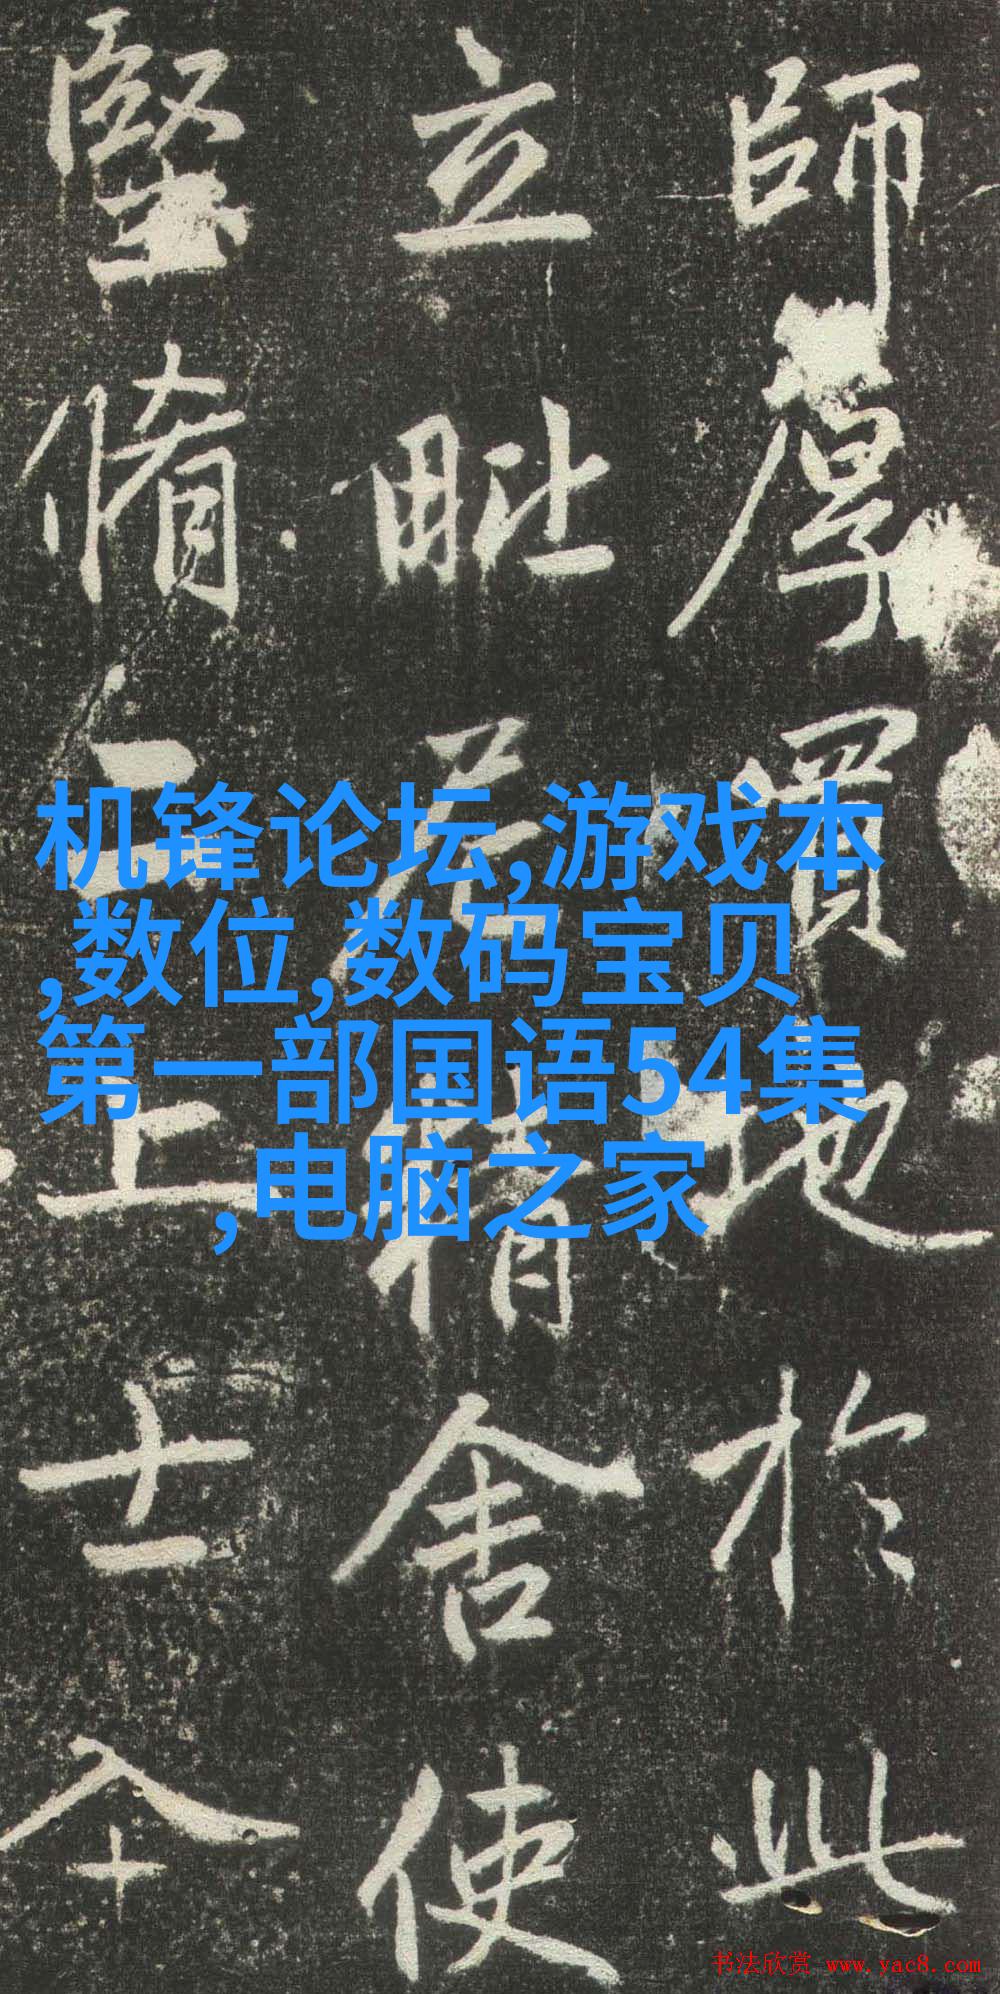 師厚買地於此
立毗尼精舍使
堅脩上士
机锋论坛,游戏本
,数位,数码宝贝
第一部国语54集
,电脑之家
书法欣赏 www.yac8.com